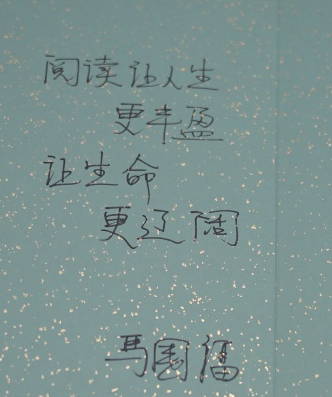 阅读让人生
更丰盈
让生命
更辽阔
马国福